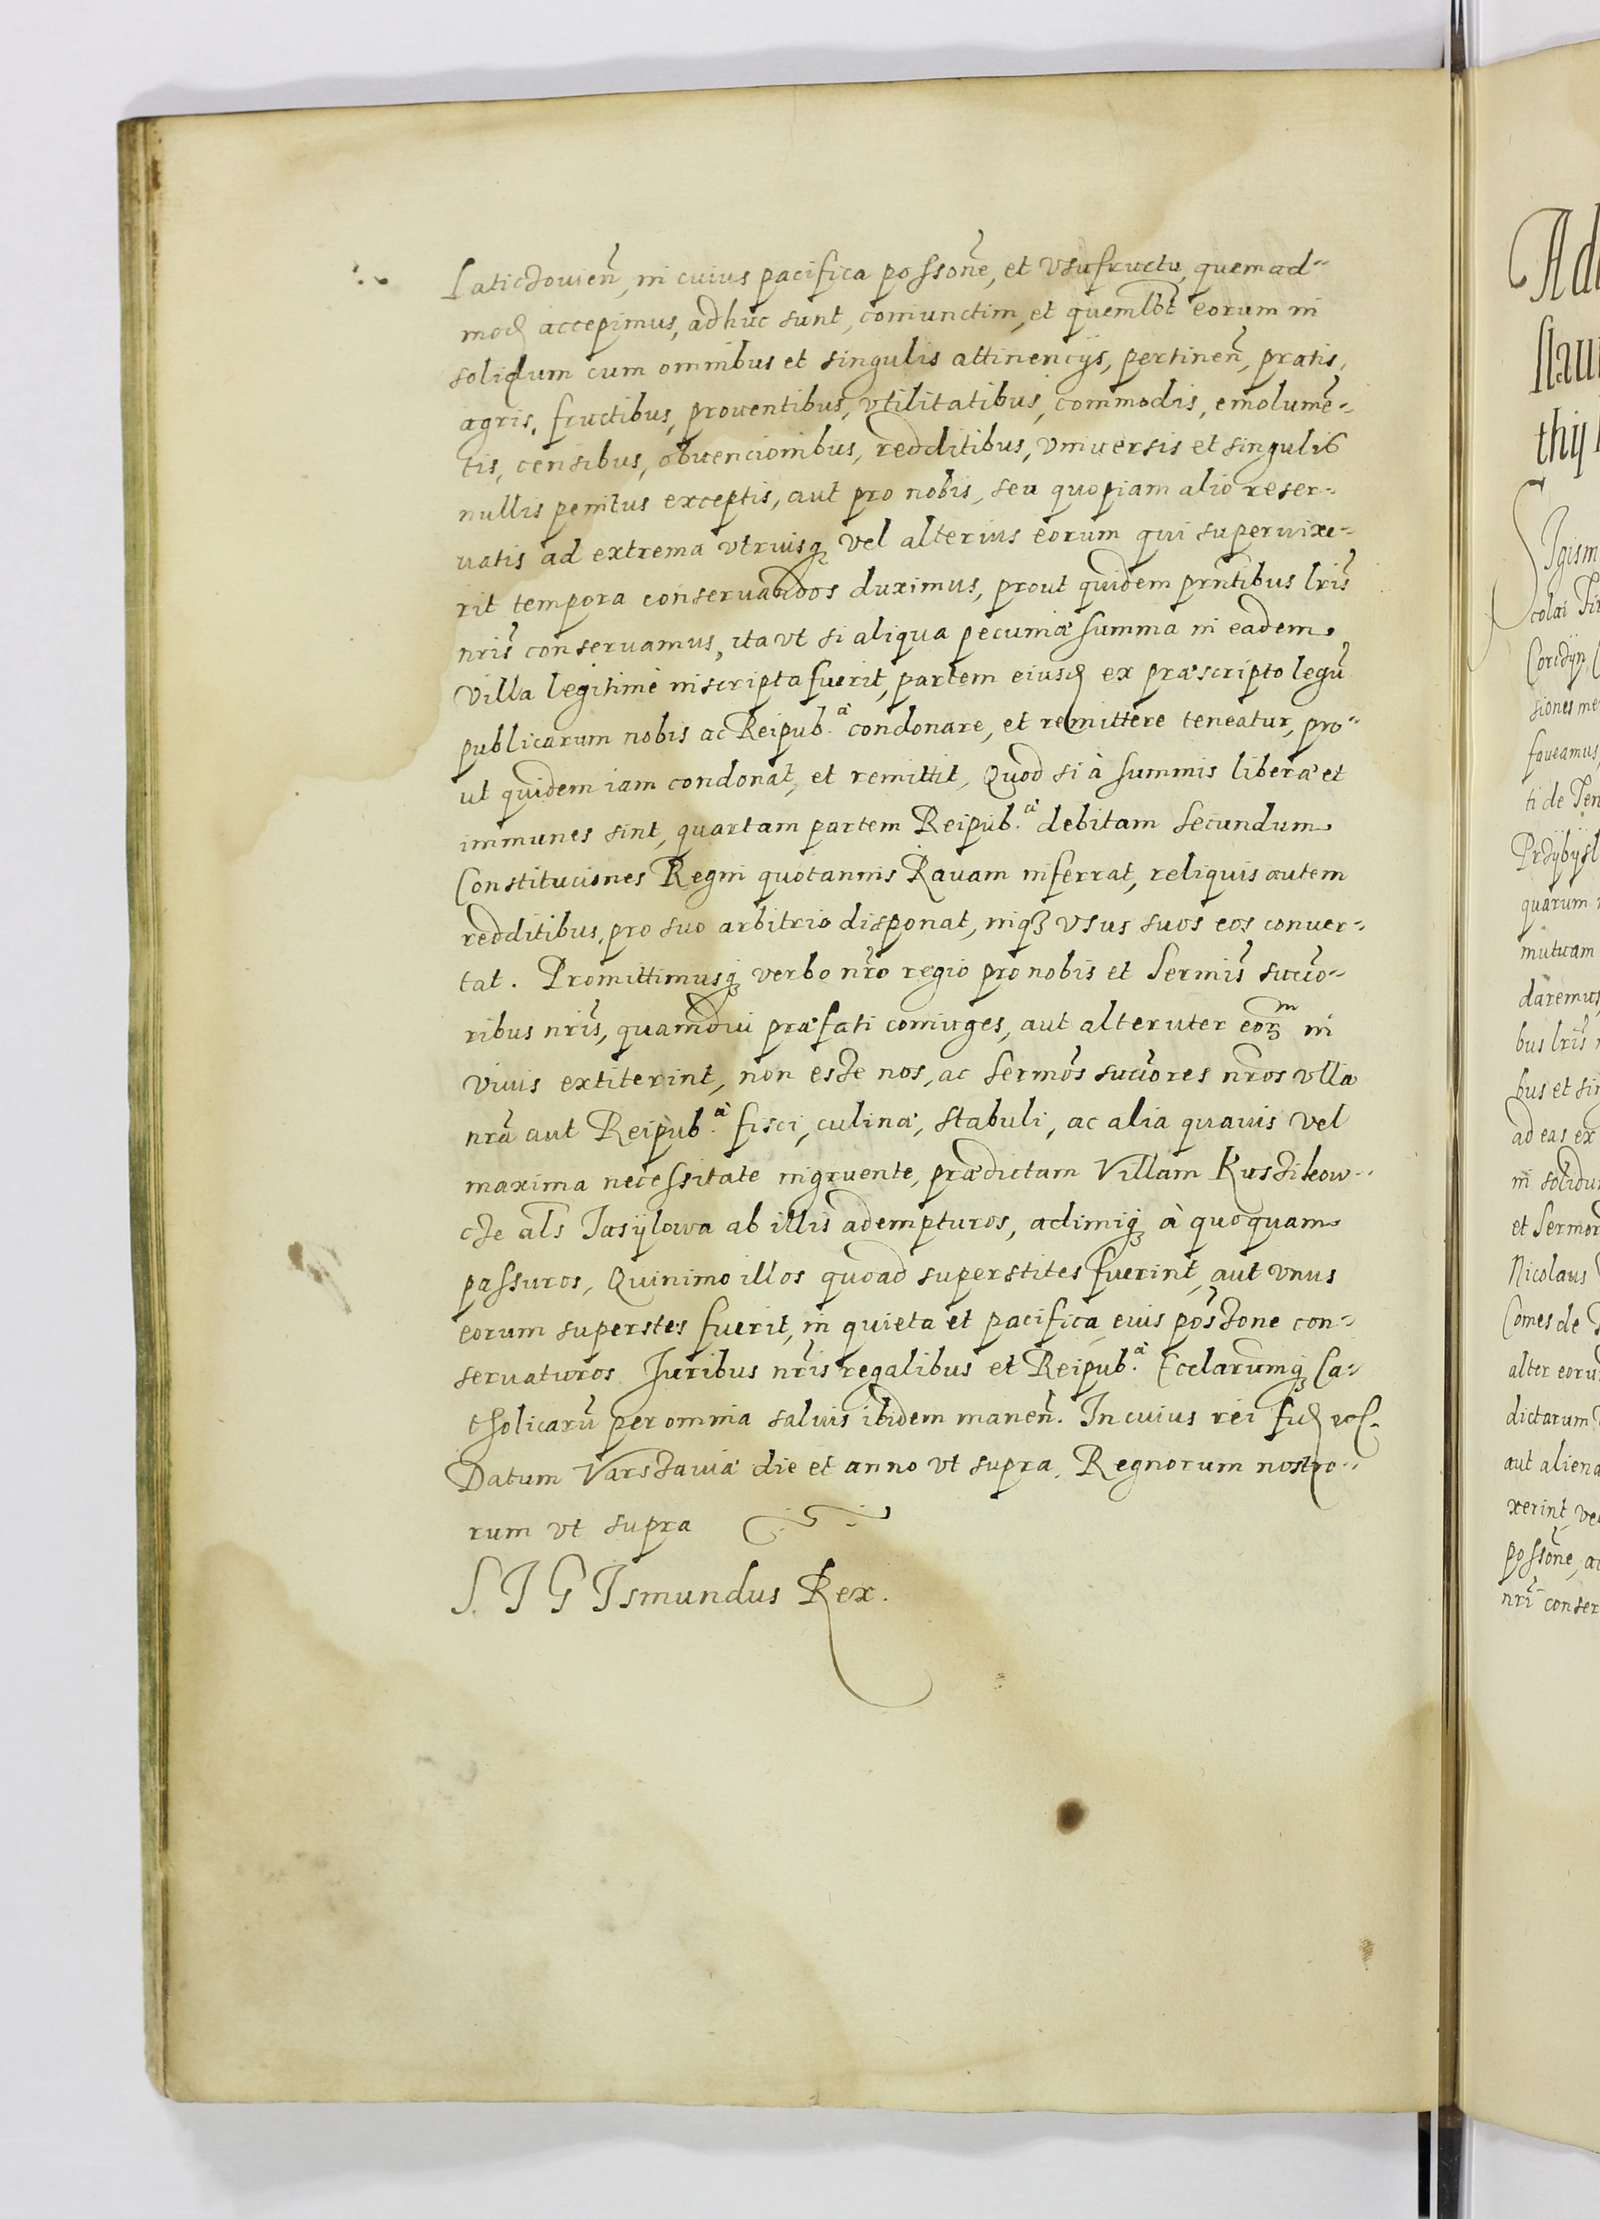 Laticzouien̄, in cuius pacifica possoñe, et vsufructu, quemad-
mod accepimus, adhuc sunt, coniunctim, et quemlbt eorum in
solidum cum omnibus et singulis attinencijs, pertinen̄, pratis,
agris, fructibus, prouentibus, vtilitatibus, commodis, emolumē-
tis, censibus, obuencionibus, redditibus, vniuersis et singulis
nullis penitus exceptis, aut pro nobis, seu quopiam alio reser-
uatis ad extrema vtriusq vel alterius eorum qui superuixe-
rit tempora conseruandos duximus, prout quidem prn̄tibus lris̄
nris̄ conseruamus, ita vt si aliqua pecuniæ summa in eadem
Villa legitimè inscripta fuerit, partem eiusd ex præscripto legū
publicarum nobis ac Reipub.æ condonare, et remittere teneatur, pro-
ut quidem iam condonat, et remittit, Quod si à summis liberæ et
immunes sint, quartam partem Reipub.æ debitam secundum
Constituciones Regni quotannis Rauam inferrat, reliquis autem
redditibus, pro suo arbitrio disponat, inqȝ vsus suos eos conuer-
tat. Promittimusqȝ verbo nr̄o regio pro nobis et Sermis̄ succō-
ribus nris̄, quamdiu præfati coniuges, aut alteruter eorȝm in
viuis extiterint, non esse nos, ac Sermōs succōres nr̄os vlla
nrā aut Reipub.æ fisci, culinæ, stabuli, ac alia quauis vel
maxima necessitate ingruente, prædictam Villam Kuszikow-
cze als̄ Jasÿlowa ab illis adempturos, adimiqȝ à quoquam
passuros, Quinimo illos quoad superstites fuerint, aut vnus
eorum superstes fuerit, in quieta et pacifica eius pos̄sone con-
seruaturos Juribus nris̄ regalibus et Reipub.æ Ecclarumqȝ Ca-
tholicarū per omnia saluis ibidem manen̄. In cuius rei fid
Datum Varszauiæ die et anno vt supra, Regnorum nostro-
rum vt supra
SIGIsmundus Rex.
Ad
slau
thij
Igism
colai
Corczÿn
siones me
faueamus,
ti de Ten
Przÿbÿsl
quarum
mutuam
daremus
bus lris̄
bus et sin
ad eas ex
in solidu
et Sermo
Nicolaus
Comes de
alter eoru
dictarum
aut aliena
xerint, ve
possoñe, a
nri conser